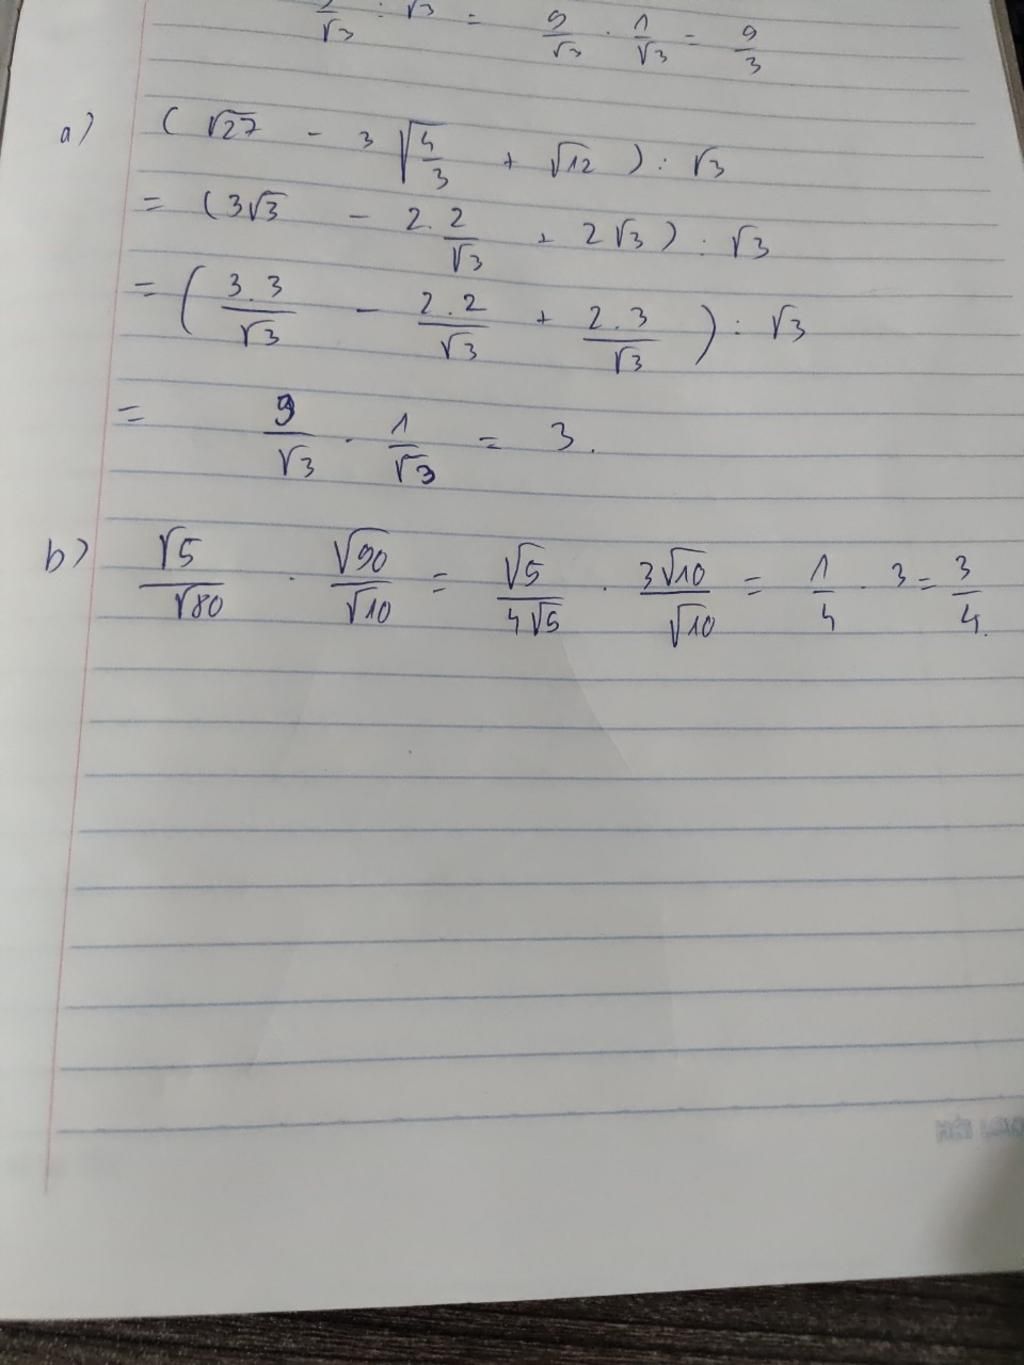 : √3 = 9/√3 . 1/√3 = 9/3
a) (√27 - 3√(4/3) + √12) : √3
= (3√3 - 2.2/√3 + 2√3) : √3
= (3.3/√3 - 2.2/√3 + 2.3/√3) : √3
= 9/√3 . 1/√3 = 3.
b) √5/√80 . √90/√10 = √5/4√5 . 3√10/√10 = 1/4 . 3 = 3/4.